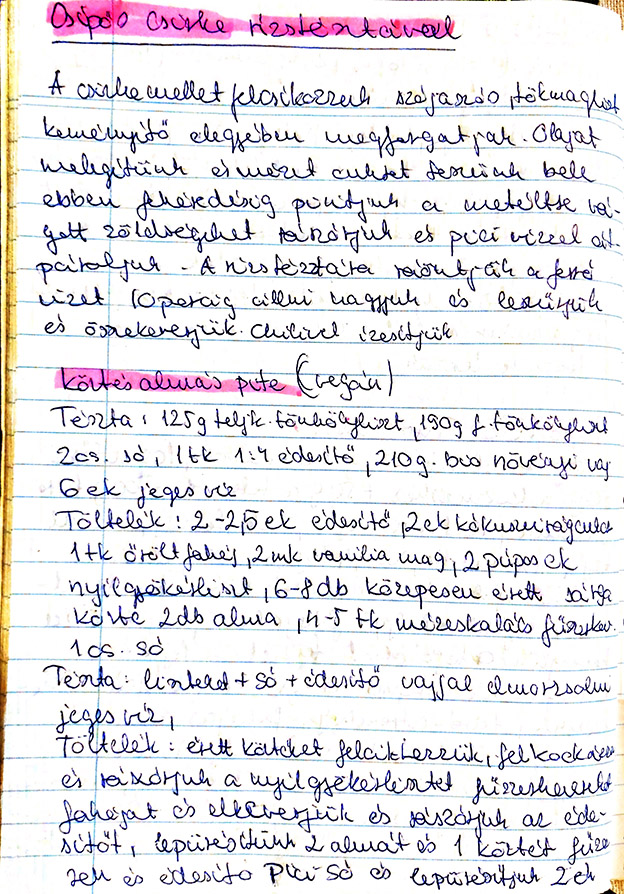 Csípős csirke rizstésztával
A csirkemellet felcsíkozzuk szójaszós, tökmagliszt
keményítő elegyében megforgatjuk. Olajat
melegítünk és mézet cukrot teszünk bele
ebben fehéredésig pirítjuk a metéltre vá-
gott zöldségeket rászórjuk és pici vízzel át-
pároljuk. A rizstésztára ráöntjük a forró
vizet 10 percig állni hagyjuk és leszűrjük
és összekeverjük. Chilivel ízesítjük
Körtés almás pite (vegán)
Tészta: 125g telj.k. tönkölyliszt, 190g f. tönkölyliszt
2cs. só, 1tk 1:4 édesítő, 210g. bio növényi vaj
6 ek jeges víz
Töltelék: 2-2,5 ek édesítő, 2 ek kókuszvirágcukor
1 tk őrölt fahéj, 2 mk vanília mag, 2 púpos ek
nyílgyökérliszt, 6-8 db közepesen érett sárga
körte 2db alma, 4-5 tk mézeskalács fűszerkev.
1 cs. só
Tészta: liszteket + só + édesítő vajjal elmorzsolni
jeges víz,
Töltelék: érett körtéket felcikkezzük, felkockázzuk
és rászórjuk a nyílgyökérlisztet fűszerkeveréket
fahéjat és elkeverjük és rászórjuk az éde-
sítőt, lepürésítünk 2 almát és 1 körtét fűsze
rek és édesítő Pici só és lepürésítjük 2 ek